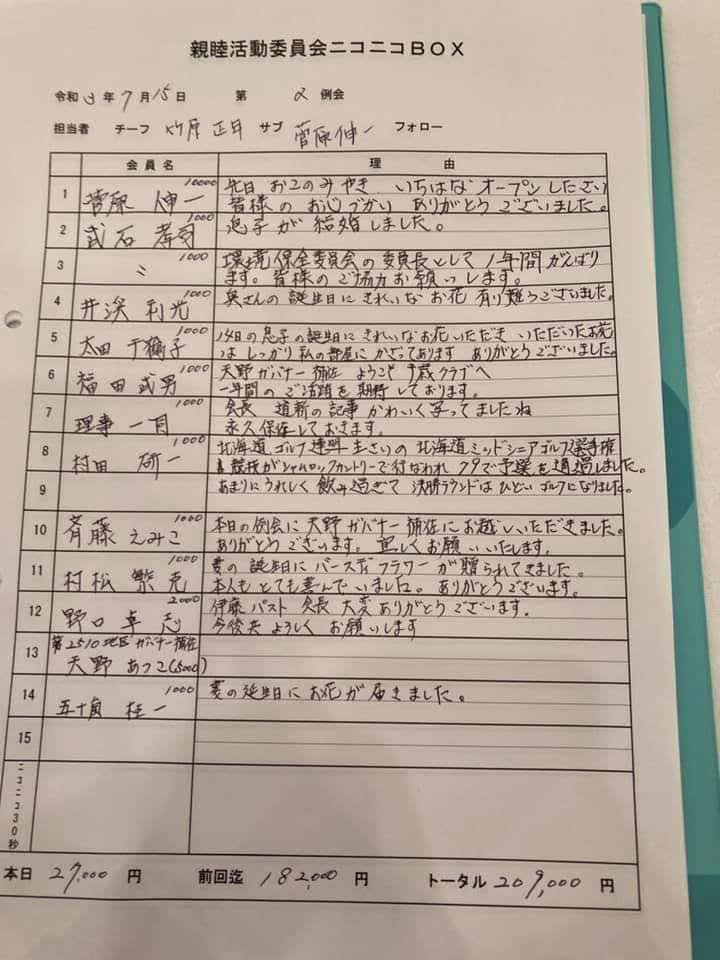 親睦活動委員会ニコニコBOX
令和 3 年 7 月 15 日 第 2 例会
担当者 チーフ 正年 サブ 菅原伸一 フォロー
会員名 理由
1 菅原 伸一 10000 先日 おこのみやき いちはな オープンしたさい
皆様の お心づかい ありがとう ございました。
2 武石 孝司 1000 息子が 結婚しました。
3 〃 1000 環境保全委員会の委員長として 1年間がんばり
ます。皆様の ご協力お願いします。
4 井渓 利光 1000 奥さんの誕生日にきれいな お花 有り難うございました。
5 太田 千鶴子 1000 14日の息子の誕生日に きれいなお花いただき いただいたお花
は しっかり私の部屋に かざってあります ありがとうございました。
6 福田 武男 1000 天野ガバナー補佐 ようこそ 千歳クラブへ
一年間の ご活躍を期待しております。
7 理事 一同 1000 会長 道新の記事 かわいく写ってましたね
永久保存しておきます。
8 村田 研一 1000 北海道ゴルフ連盟主さいの 北海道ミッドシニアゴルフ選手権
競技がシャムロックカントリーで行なわれ 79で予選を通過しました。
9 あまりにうれしく飲み過ぎて 決勝ラウンドは ひどいゴルフになりました。
10 斉藤 えみこ 1000 本日の例会に天野ガバナー補佐にお越しいただきました。
ありがとうございます。宜しくお願いいたします。
11 村松 繁克 1000 妻の誕生日にバースディフラワーが贈られてきました。
本人も とても喜んでいました。ありがとうございます。
12 野口 卓志 2000 伊藤パスト会長 大変ありがとうございます.
今後共 よろしく お願いします
13 第2510地区ガバナー補佐
天野 あつこ(5000)
14 五十嵐 桂一 1000 妻の誕生日にお花が届きました。
15
ニコニコ30秒
本日 27,000 円 前回迄 182,000 円 トータル 209,000 円